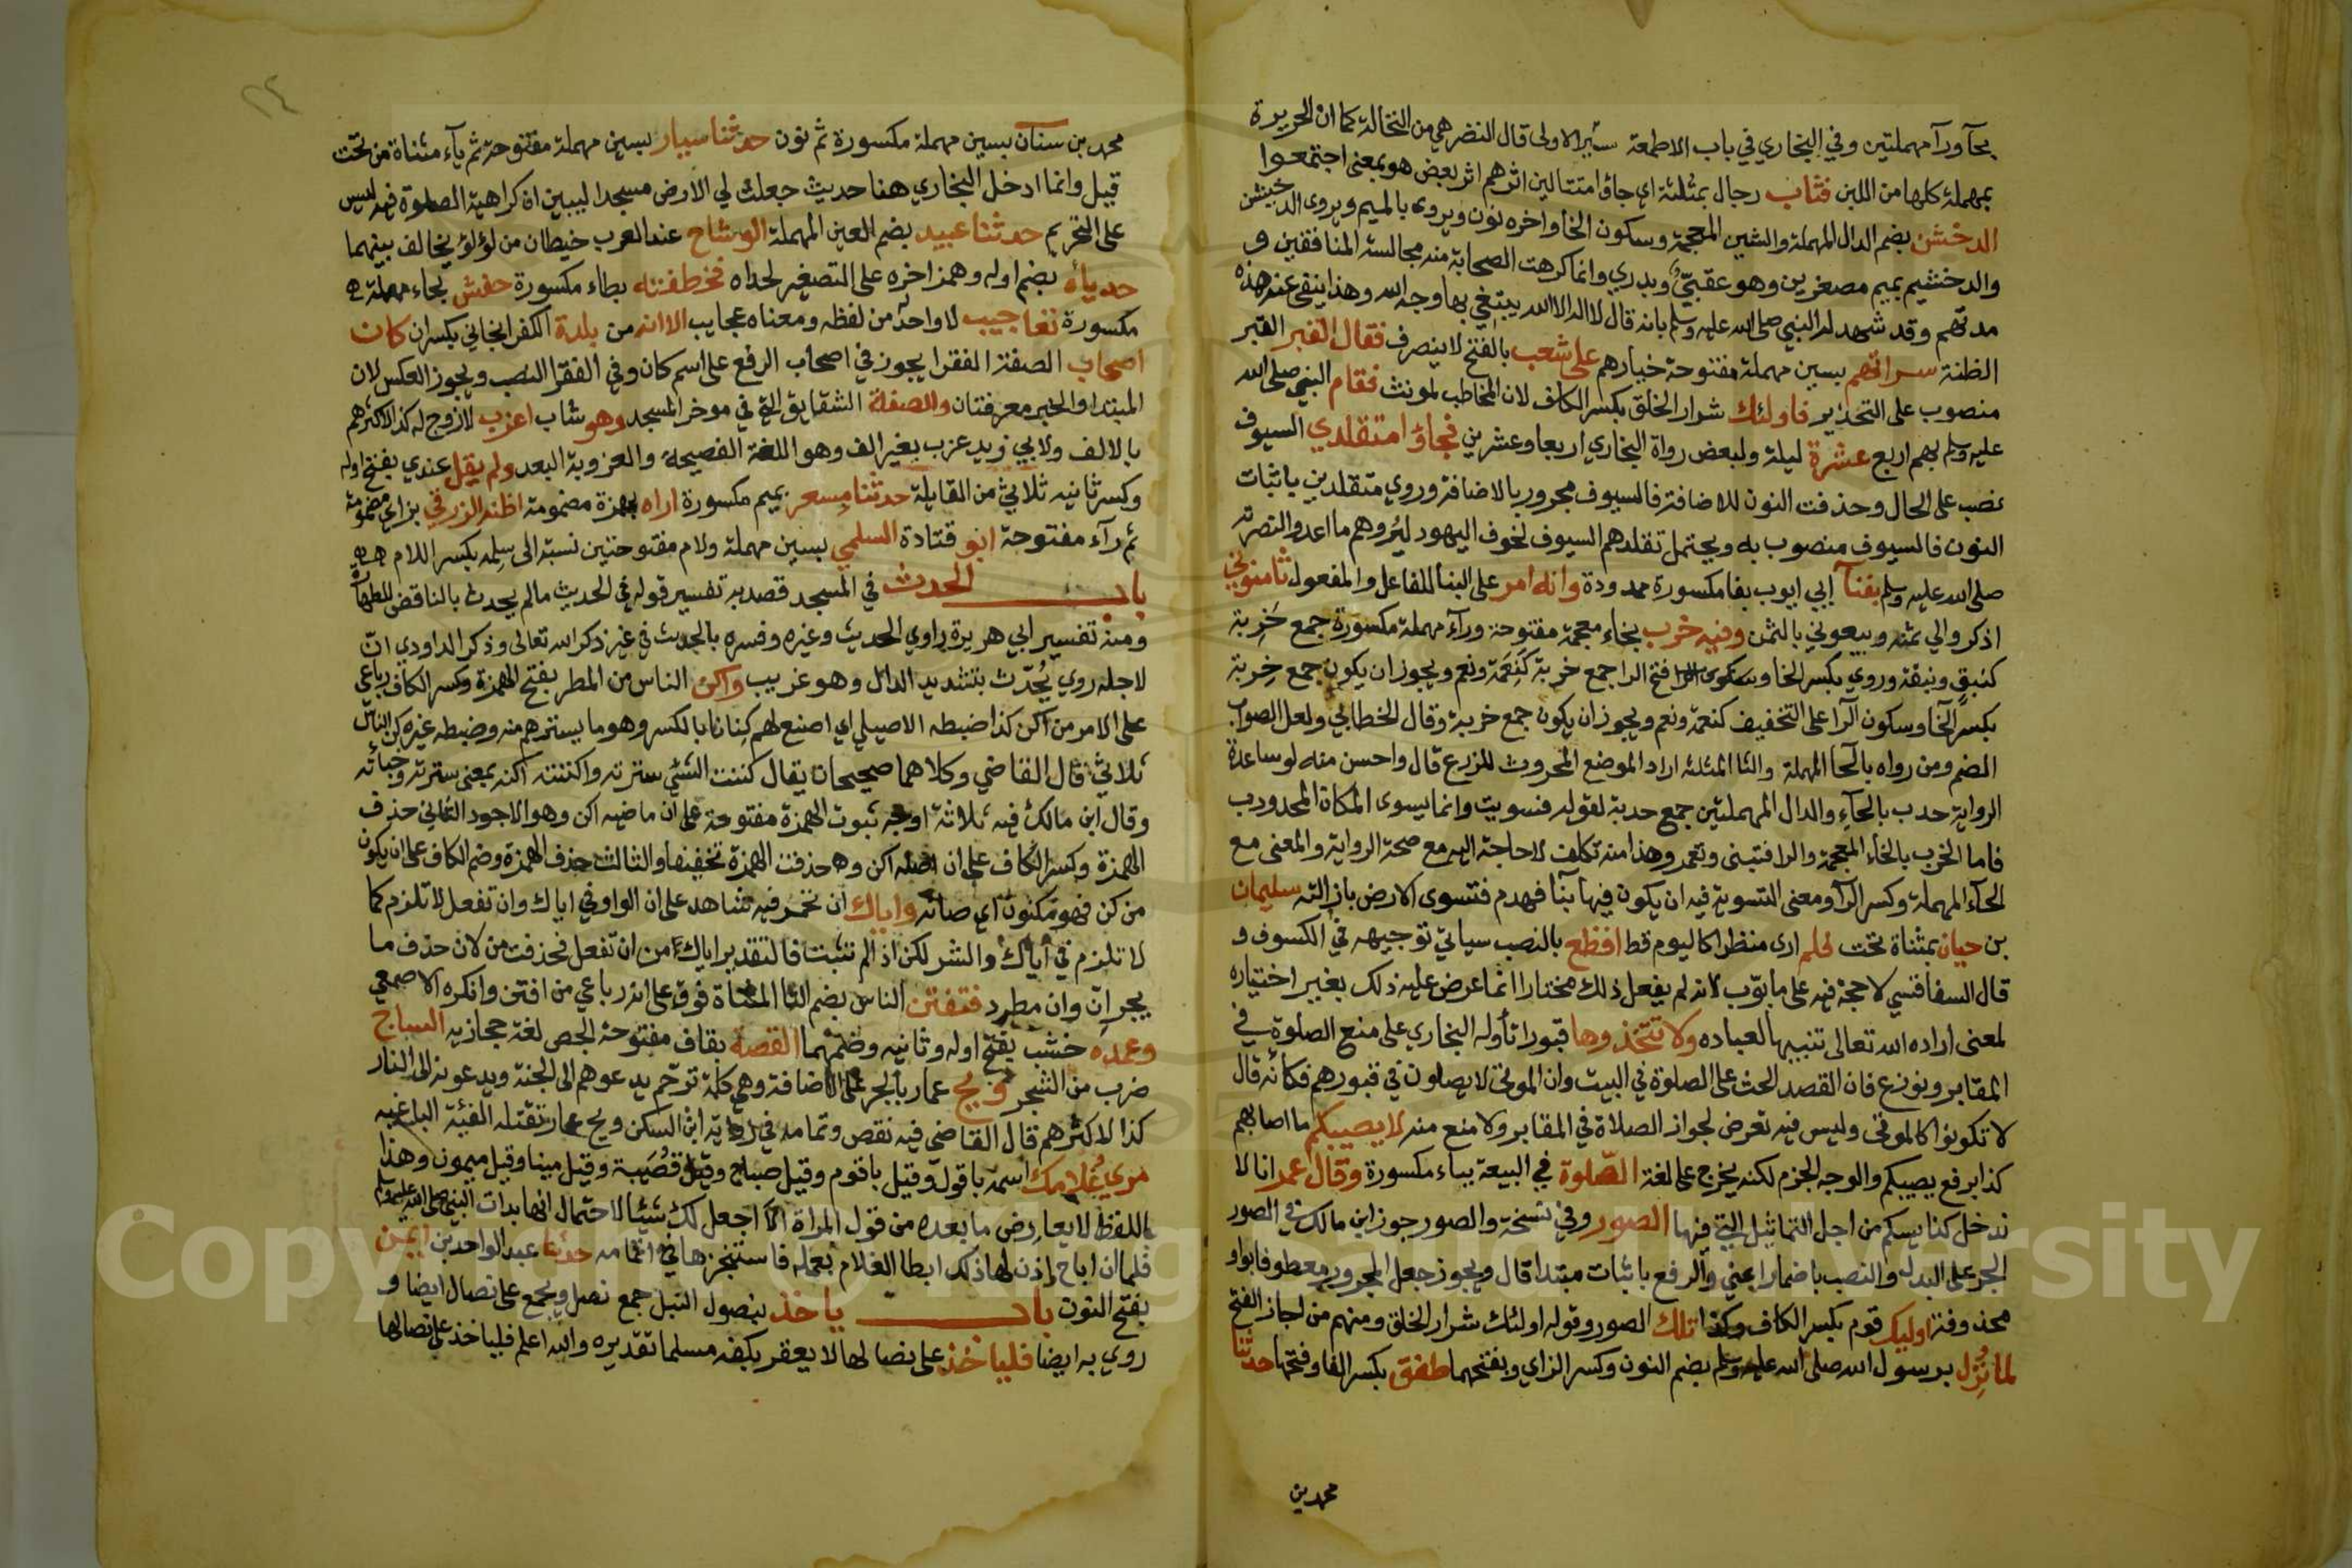 بحآ ورآ مهملتين وفي البخاري في باب الاطعمة سئير الاولى قال النضر هي من النخالة كما ان الحريرة
بمهملة كلها من اللبن فثاب رجال بمثلثة اي جاؤا متتالين اثرهم اثر بعض هو بمعنى اجتمعوا
الدخشن بضم الدال المهملة والشين المعجمة وسكون الخا واخره نون ويروى بالميم ويروى الدخيشن
والدخيشم بميم مصغرين وهو عقبيّ وبدري وانما كرهت الصحابة منه مجالسة المنافقين و
مدتهم وقد شهد له النبي صلى الله عليه وسلم بانه قال لا اله الا الله يبتغي بها وجه الله وهذا ينفي عنه هذه
الظنة سراتهم بسين مهملة مفتوحة خيارهم على شعب بالفتح لا ينصرف فقال القبر القبر
منصوب على التحذير فاولئك شرار الخلق بكسر الكاف لان المخاطب لمونث فقام النبي صلى الله
عليه وسلم بهم اربع عشرة ليلة ولبعض رواة البخاري اربعا وعشرين فجاؤا متقلدي السيوف
نصب على الحال وحذفت النون للاضافة فالسيوف مجرور بالاضافة وروي متقلدين باثبات
النون فالسيوف منصوب به ويحتمل تقلدهم السيوف لخوف اليهود ليُروهم ما اعدوا لنصرته
صلى الله عليه وسلم بفنآ ابي ايوب بفا مكسورة ممدودة وانه امر على البنا للفاعل والمفعول ثامنوني
اذكروا لي ثمنه وبيعوني بالثمن وفيه خرب بخاء معجمة مفتوحة ورآء مهملة مكسورة جمع خَرِبة
كنبق ونبقة وروي بكسر الخا وفتح الرا جمع خربة كنعمة ونعم ويجوز ان يكون جمع خِربة
بكسر الخا وسكون الرا على التخفيف كنعمة ونعم ويجوز ان يكون جمع خربة وقال الخطابي ولعل الصواب
الضم ومن رواه بالحآ المهملة والثا المثلثه اراد الموضع المحروث للزرع قال واحسن منه لو ساعده
الرواية حدب بالحآء والدال المهملتين جمع حدبة لقوله فسويت وانما يسوى المكان المحدودب
فاما الخرب بالخاء المعجمة والرا فتبنى وتعمر وهذا منه تكلف لا حاجة اليه مع صحة الرواية والمعنى مع
الحآء المهملة وكسر الرآ ومعنى التسوية فيه ان يكون فيها بنآ فهدم فتسوى الارض بازالته سليمان
بن حيان بمثناة تحت فلم ارى منظرا كاليوم قط افظع بالنصب سياتي توجيهه في الكسوف و
قال السفاقسي لا حجة فيه على ما بوّب لانه لم يفعل ذلك مختارا انما عرض عليه ذلك بغير اختياره
لمعنى اراده الله تعالى تنبيها لعباده ولا تتخذوها قبورا تأوله البخاري على منع الصلوة في
المقابر ونوزع فان القصد الحث على الصلوة في البيت وان الموتى لا يصلون في قبورهم فكأنه قال
لا تكونوا كالموتى وليس فيه تعرض لجواز الصلاة في المقابر ولا منع منه لا يصيبكم ما اصابهم
كذا برفع يصيبكم والوجه الجزم لكنه يخرج على لغة الصّلوة في البيعة بباء مكسورة وقال عمر انا لا
ندخل كنايسكم من اجل التماثيل التي فيها الصور وفي نسخة والصور جوز ابن مالك في الصور
الجر على البدل والنصب باضمار اعني والرفع باثبات مبتدا قال ويجوز جعل المجرور معطوفا بواو
محذوفة اوليك قوم بكسر الكاف وكذا تلك الصور وقوله اولئك شرار الخلق ومنهم من اجاز الفتح
لما نُزِل برسول الله صلى الله عليه وسلم بضم النون وكسر الزاي وبفتحهما طفق بكسر الفا وفتحها حدثنا
محمد بن
محمد بن سنآن بسين مهملة مكسورة ثم نون حدثنا سيار بسين مهملة مفتوحة ثم يآء مثناة من تحت
قيل وانما ادخل البخاري هنا حديث جعلت لي الارض مسجدا ليبين ان كراهية الصلوة فيه ليس
على التحريم حدثنا عبيد بضم العين المهملة الوشاح عند العرب خيطان من لؤلؤ يخالف بينهما
حدياة بضم اوله وهمز اخره على التصغير لحداه فخطفته بطاء مكسورة حفش بحاء مهملة
مكسورة تعاجيب لا واحد من لفظه ومعناه عجايب الا انه من بلدة الكفر انجاني بكسر ان كان
اصحاب الصفة الفقرا يجوز في اصحاب الرفع على اسم كان وفي الفقرا النصب ويجوز العكس لان
المبتدا والخبر معرفتان والصفة الشقايق التي في موخر المسجد وهو شاب اعزب لا زوج له كذا لاكثرهم
بالالف ولابي زيد عزب بغير الف وهو اللغة الفصيحة والعزوبة البعد ولم يقل عندي بفتح اوله
وكسر ثانيه ثلاثيّ من القايلة حدثنا مِسعر بميم مكسورة اراه بهمزة مضمومة اظنه الزرقي بزاي مضمومة
ثم رآء مفتوحة ابو قتادة السلمي بسين مهملة ولام مفتوحتين نسبة الى سلِمه بكسر اللام
باب الحدث في المسجد قصد به تفسير قوله في الحديث ما لم يحدث بالناقض للطهارة
ومنه تفسير ابي هريرة راوي الحديث وغيره وفسره بالحديث في غير ذكر الله تعالى وذكر الداودي انّ
لاجله روي يُحَدّث بتشديد الدال وهو غريب واكن الناس من المطر بفتح الهمزة وكسر الكاف رباعي
على الامر من اكن كذا ضبطه الاصيلي اي اصنع لهم كِنانا بالكسر وهو ما يسترهم منه وضبطه غيره كن الناس
ثلاثي قال القاضي وكلاهما صحيحان يقال كننت الشئي سترته واكننته اكنه بمعنى سترته وخبأته
وقال ابن مالك فيه ثلاثة اوجه ثبوت الهمزة مفتوحة على ان ماضيه اكن وهو الاجود الثاني حذف
الهمزة وكسر الكاف على ان اصله اكن حذفت الهمزة تخفيفا والثالث حذف الهمزة وضم الكاف على ان يكون
من كن فهو مكنون اي صانه واياك ان تحمر فيه شاهد على ان الواو في اياك وان تفعل لا تلزم كما
لا تلزم في اياك والشر لكن اذا لم تثبت فالتقدير اياك من ان تفعل فحذفت من لان حذف ما
يجر انّ وان مطرد فتفتن الناس بضم التا المثناة فوق على انه رباعي من افتن وانكره الاصمعي
وعمده خشب بفتح اوله وثانيه وضمّهما القصة بقاف مفتوحة الجص لغة حجازية الساج
ضرب من الشجر ويح عمار بالجر على الاضافة وهي كلمة ترحّم يدعوهم الى الجنة ويدعونه الى النار
كذا لاكثرهم قال القاضي فيه نقص وتمامه في رواية ابن السكن ويح عمار تقتله الفئية الباغية
مري غُلامك اسمه باقول وقيل باقوم وقيل صباح وقيل قصيبة وقيل مينا وقيل ميمون وهذا
اللفظ لا يعارض ما بعده من قول المراة الا اجعل لك شيئا لاحتمال انها بدات النبي صلى الله عليه وسلم
فلما ان اباح واذن لها ذلك ابطا الغلام بعمله فاستنجزها في اتمامه حدثنا عبد الواحد بن ايمن
بفتح النون باب ياخذ بنصول النبل جمع نصل ويجمع على نصال ايضا و
روي به ايضا فلياخذ على نصالها لا يعقر بكفه مسلما تقديره والله اعلم فلياخذ على نصالها